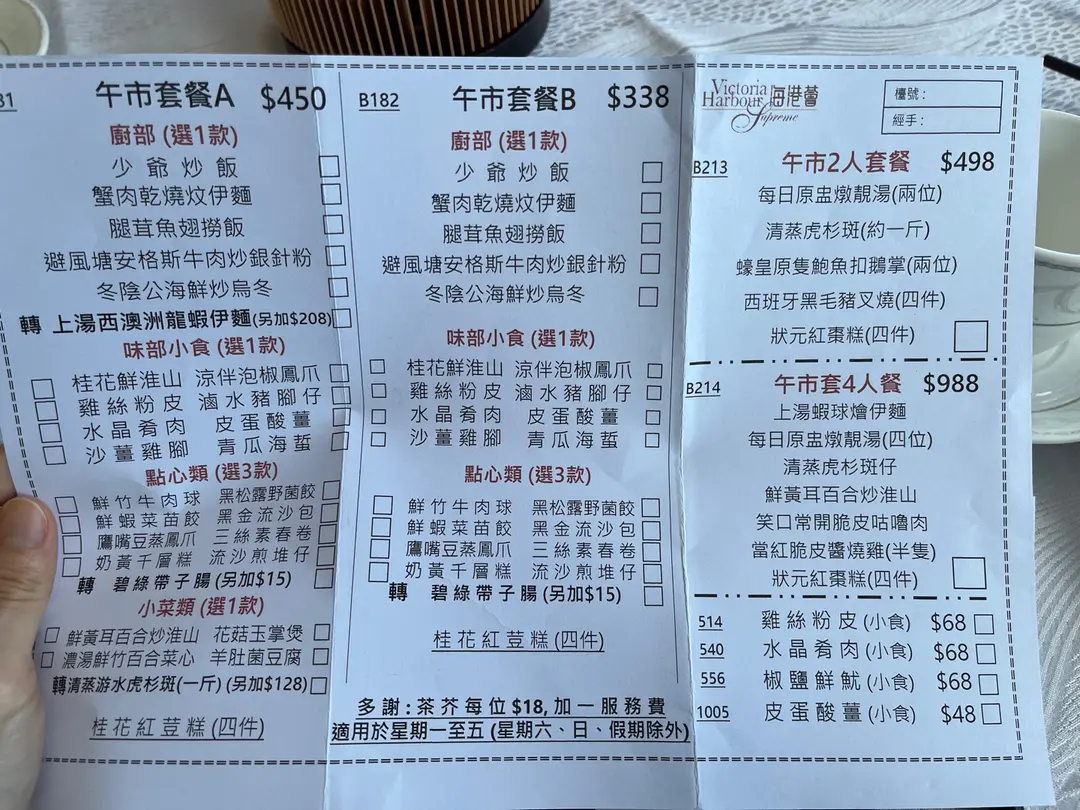 81 午市套餐A $450
廚部 (選1款)
少爺炒飯
蟹肉乾燒炆伊麵
腿茸魚翅撈飯
避風塘安格斯牛肉炒銀針粉
冬陰公海鮮炒烏冬
轉 上湯西澳洲龍蝦伊麵(另加$208)
味部小食 (選1款)
桂花鮮淮山 涼伴泡椒鳳爪
雞絲粉皮 滷水豬腳仔
水晶肴肉 皮蛋酸薑
沙薑雞腳 青瓜海蜇
點心類 (選3款)
鮮竹牛肉球 黑松露野菌餃
鮮蝦菜苗餃 黑金流沙包
鷹嘴豆蒸鳳爪 三絲素春卷
奶黃千層糕 流沙煎堆仔
轉 碧綠帶子腸 (另加$15)
小菜類 (選1款)
鮮黃耳百合炒淮山 花菇玉掌煲
濃湯鮮竹百合菜心 羊肚菌豆腐
轉清蒸游水虎杉斑(一斤) (另加$128)
桂花紅荳糕 (四件)
B182 午市套餐B $338
廚部 (選1款)
少爺炒飯
蟹肉乾燒炆伊麵
腿茸魚翅撈飯
避風塘安格斯牛肉炒銀針粉
冬陰公海鮮炒烏冬
味部小食 (選1款)
桂花鮮淮山 涼伴泡椒鳳爪
雞絲粉皮 滷水豬腳仔
水晶肴肉 皮蛋酸薑
沙薑雞腳 青瓜海蜇
點心類 (選3款)
鮮竹牛肉球 黑松露野菌餃
鮮蝦菜苗餃 黑金流沙包
鷹嘴豆蒸鳳爪 三絲素春卷
奶黃千層糕 流沙煎堆仔
轉 碧綠帶子腸 (另加$15)
桂花紅荳糕 (四件)
多謝:茶芥每位$18,加一服務費
適用於星期一至五 (星期六、日、假期除外)
Victoria
Harbour 海港薈
Supreme
檯號:
經手:
B213 午市2人套餐 $498
每日原盅燉靚湯(兩位)
清蒸虎杉斑(約一斤)
蠔皇原隻鮑魚扣鵝掌(兩位)
西班牙黑毛豬叉燒(四件)
狀元紅棗糕(四件)
B214 午市套4人餐 $988
上湯蝦球燴伊麵
每日原盅燉靚湯(四位)
清蒸虎杉斑仔
鮮黃耳百合炒淮山
笑口常開脆皮咕嚕肉
當紅脆皮醬燒雞(半隻)
狀元紅棗糕(四件)
514 雞絲粉皮(小食) $68
540 水晶肴肉(小食) $68
556 椒鹽鮮魷(小食) $68
1005 皮蛋酸薑(小食) $48